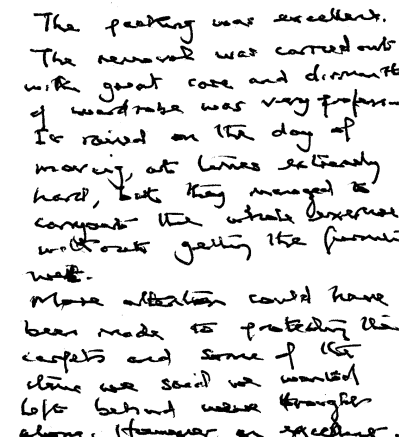 The packing was excellent.
The removal was carried out
with great care and dismantl
of wardrobe was very profession
It rained on the day of
moving, at times extremely
hard, but they managed to
carry out the whole exercise
without getting the furnitu
wet.
More attention could have
been made to protecting the
carpets and some of the
items we said we wanted
left behind were brought
along. However an excellent